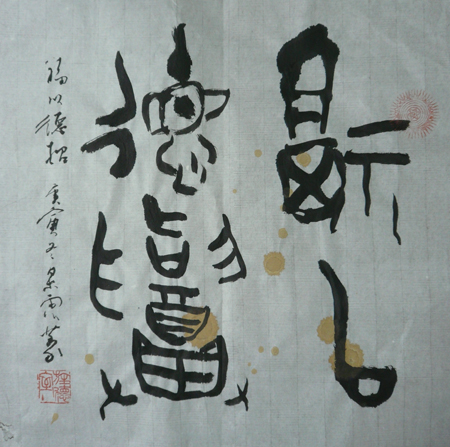 福以
德招
福以德招 庚寅冬 篆